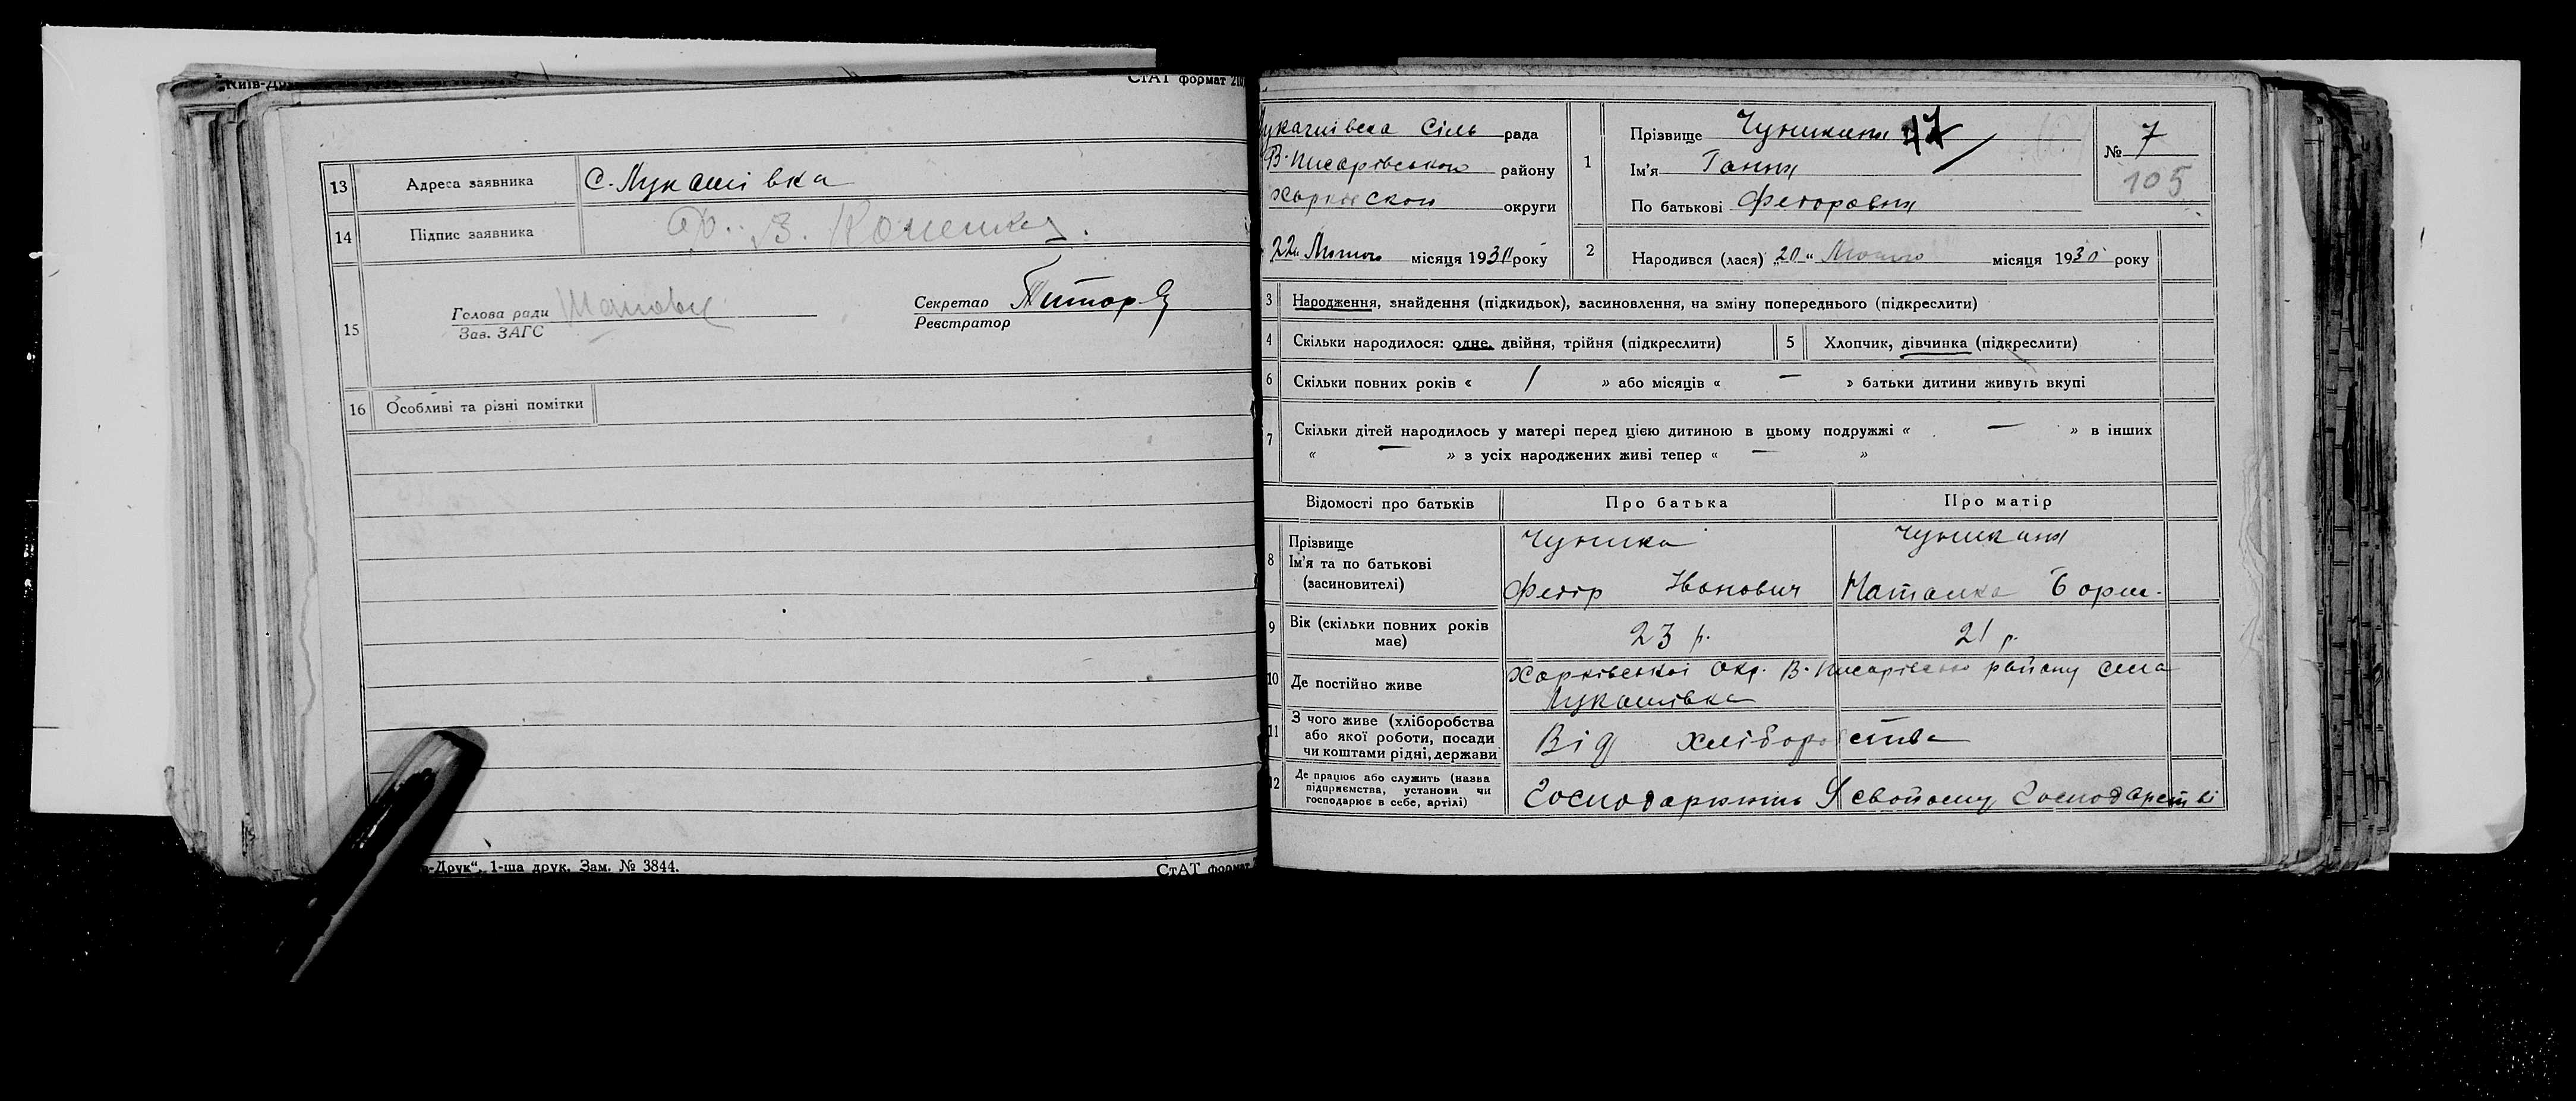 Київ-Дру
СтАТ формат 210
13 Адреса заявника С. Лукашівка
14 Підпис заявника
15 Голова ради
Зав. ЗАГС
Секретар Титар
Реєстратор
16 Особливі та різні помітки
в-Друк“. 1-ша друк. Зам. № 3844.
СтАТ формат
Лукашівска Сіль рада
В-Писарівського району
Харківскої округи
22 Лютого місяця 1930 року
1 Прізвище 47
Ім'я Ганна
По батькові Федоровна
№ 7
105
2 Народився (лася) „20“ Лютого місяця 1930 року
3 Народження, знайдення (підкидьок), засиновлення, на зміну попереднього (підкреслити)
4 Скільки народилося: одне, двійня, трійня (підкреслити)
5 Хлопчик, дівчинка (підкреслити)
6 Скільки повних років « 1 » або місяців « — » батьки дитини живуть вкупі
7 Скільки дітей народилось у матері перед цією дитиною в цьому подружжі « — » в інших
« — » з усіх народжених живі тепер « — »
Відомості про батьків
Про батька
Про матір
8 Прізвище
Ім'я та по батькові
(засиновителі)
Федір Іванович
Наталка
9 Вік (скільки повних років
має)
23 р.
21 р.
10 Де постійно живе
Харківської Окр. В-Писарівсько району села
Лукашівка
11 З чого живе (хліборобства
або якої роботи, посади
чи коштами рідні, держави
Від хліборобства
12 Де працює або служить (назва
підприємства, установи чи
господарює в себе, артілі)
Господарюють У свойому Господарстві